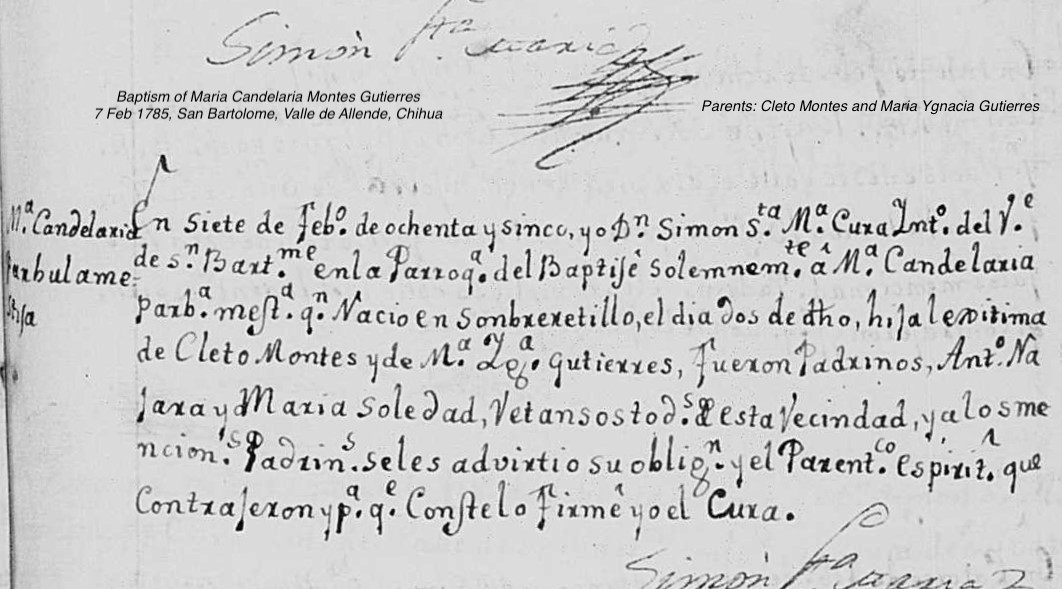 Simòn Sta. Maria
Baptism of Maria Candelaria Montes Gutierres
7 Feb 1785, San Bartolome, Valle de Allende, Chihua
Parents: Cleto Montes and Maria Ygnacia Gutierres
M.ª Candelaria
Parbula me-
stisa
En siete de Feb.º de ochenta y sinco, yo D.n Simon S.ta M.ª Cura Int.º del V.e
de s.n Bart.me en la Parroq.ª del Baptisé solemnem.te â M.ª Candelaria
Parb.ª mest.ª q.n Nacio en Sonbreretillo, el dia dos de dho, hija lexitima
de Cleto Montes y de M.ª Yg.ª Gutierres, fueron Padrinos, Ant.º Na
jara y Maria Soledad, Vetansos tod.s de esta Vecindad, y a los me
ncion.s Padrin.s se les advirtio su oblig.n y el Parent.co Espirit.l que
Contrajeron y p.ª q.e Conste lo firmê yo el Cura.
Simòn Sta. Maria